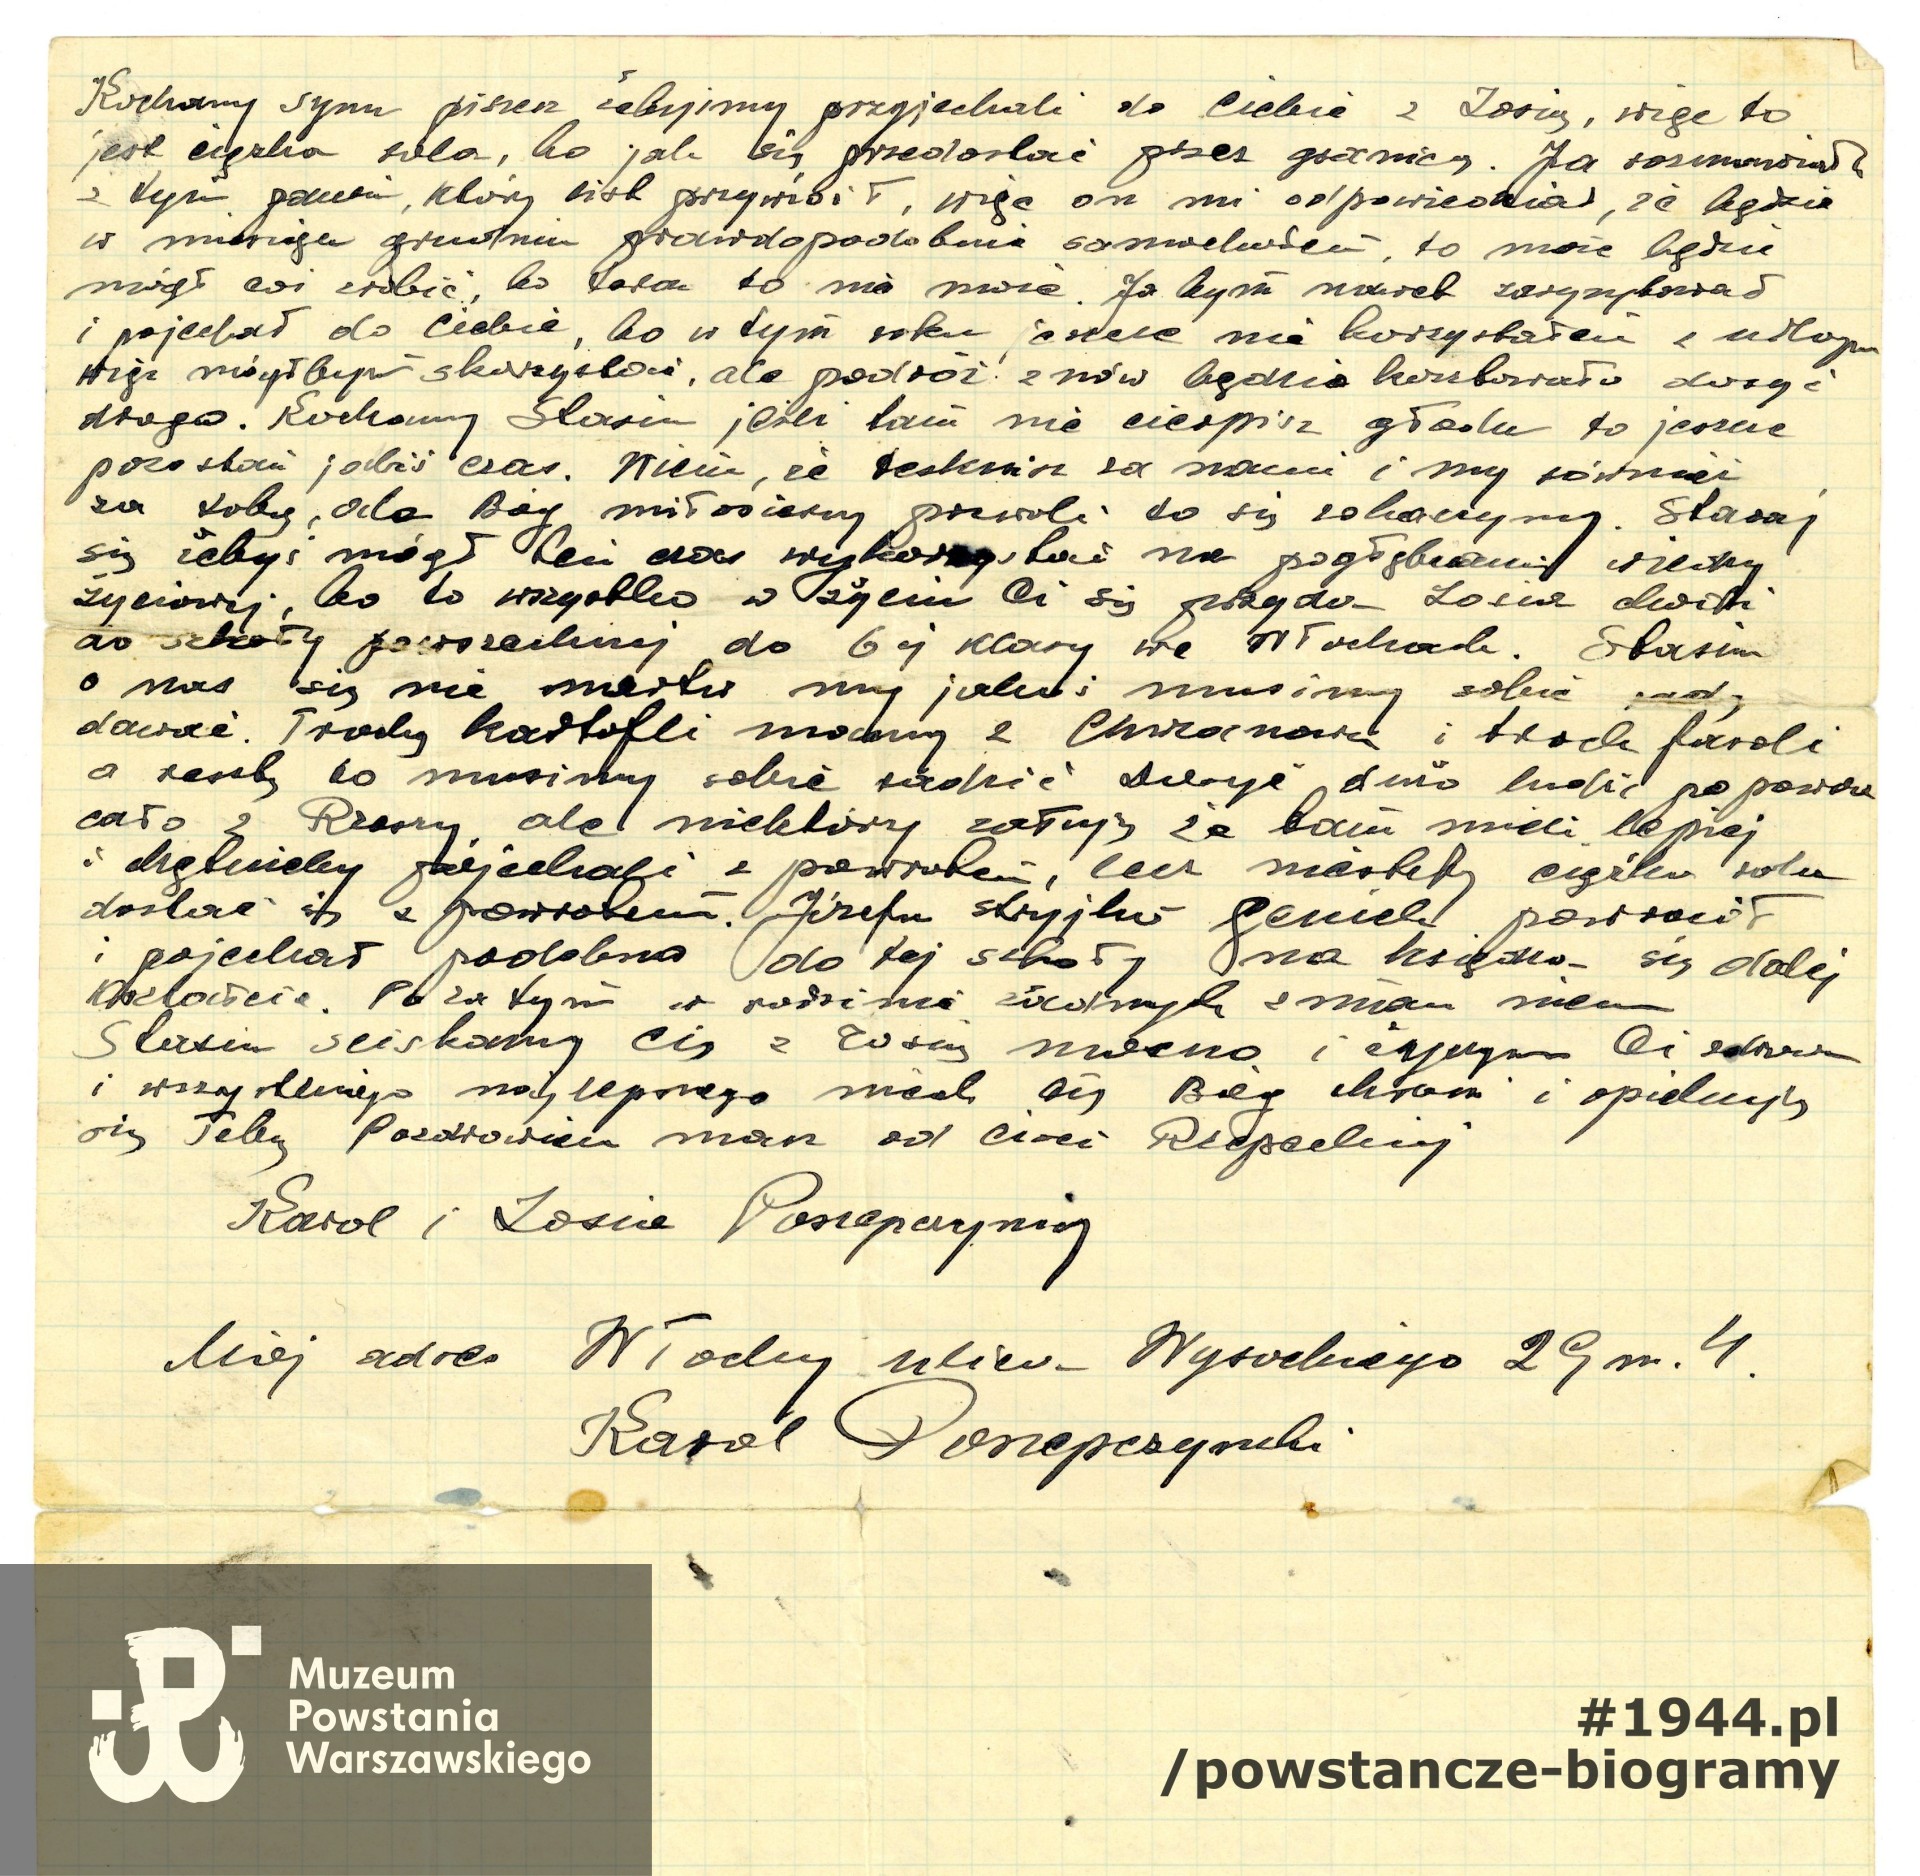 Kochany synu piszesz żebyjmy przyjechali do Ciebie z Zosią, więc to
jest ciężka rola, bo jak się przedostać przez granicę. Ja rozmawiał
z tym panem, który list przywiózł, więc on mi odpowiedział, że będzie
w miesiącu grudniu prawdopodobnie samochodem, to może będzie
mógł coś zrobić, bo teraz to nie może. Ja bym nawet zaryzykował
i pojechał do Ciebie, bo w tym roku jeszcze nie korzystałem z urlopu
więc mógłbym skorzystać, ale podróż znów będzie kosztowało dosyć
drogo. Kochany Stasiu jeśli tam nie cierpisz głodu to jeszcze
pozostań jakiś czas. Wiem, że tesknisz za nami i my również
za tobą, ale Bóg miłosierny pozwoli to się zobaczymy. Staraj
się żebyś mógł ten czas wykorzystać na pogłębianie wiedzy
życiowej, bo to wszystko w życiu Ci się przyda Zosia chodzi
do szkoły powszechnej do 6 ej klasy we Włochach. Stasiu
o nas się nie martw my jakoś musimy sobie radę
dawać. Trochę kartofli mamy z Chrzanowa i troch fasoli
a resztę to musimy sobie radzić Dosyć dużo ludzi popowra
cało z Rzeszy, ale niektórzy żałują że tam mieli lepiej
i chętnieby pojechali z powrotem, lecz niestety ciężka rola
dostać się z powrotem. Józefa stryjka Geniek powrócił
i pojechał podobno do tej szkoły na księdza się dalej
kształcić. Poza tym w rodzinie żadnych zmian niema
Stasiu sciskamy Cię z Zosią mocno i życzymy Ci zdrowia
i wszystkiego najlepszego niech Cię Bóg chroni i opiekuję
się Tobą Pozdrowieu masz od cioci Rzepeckiej
Karol i Zosia Poszepczyńscy
Mój adres Włochy ulica Wysockiego 29 m. 4.
Karol Poszepczyński
Muzeum
Powstania
Warszawskiego
#1944.pl
/powstancze-biogramy